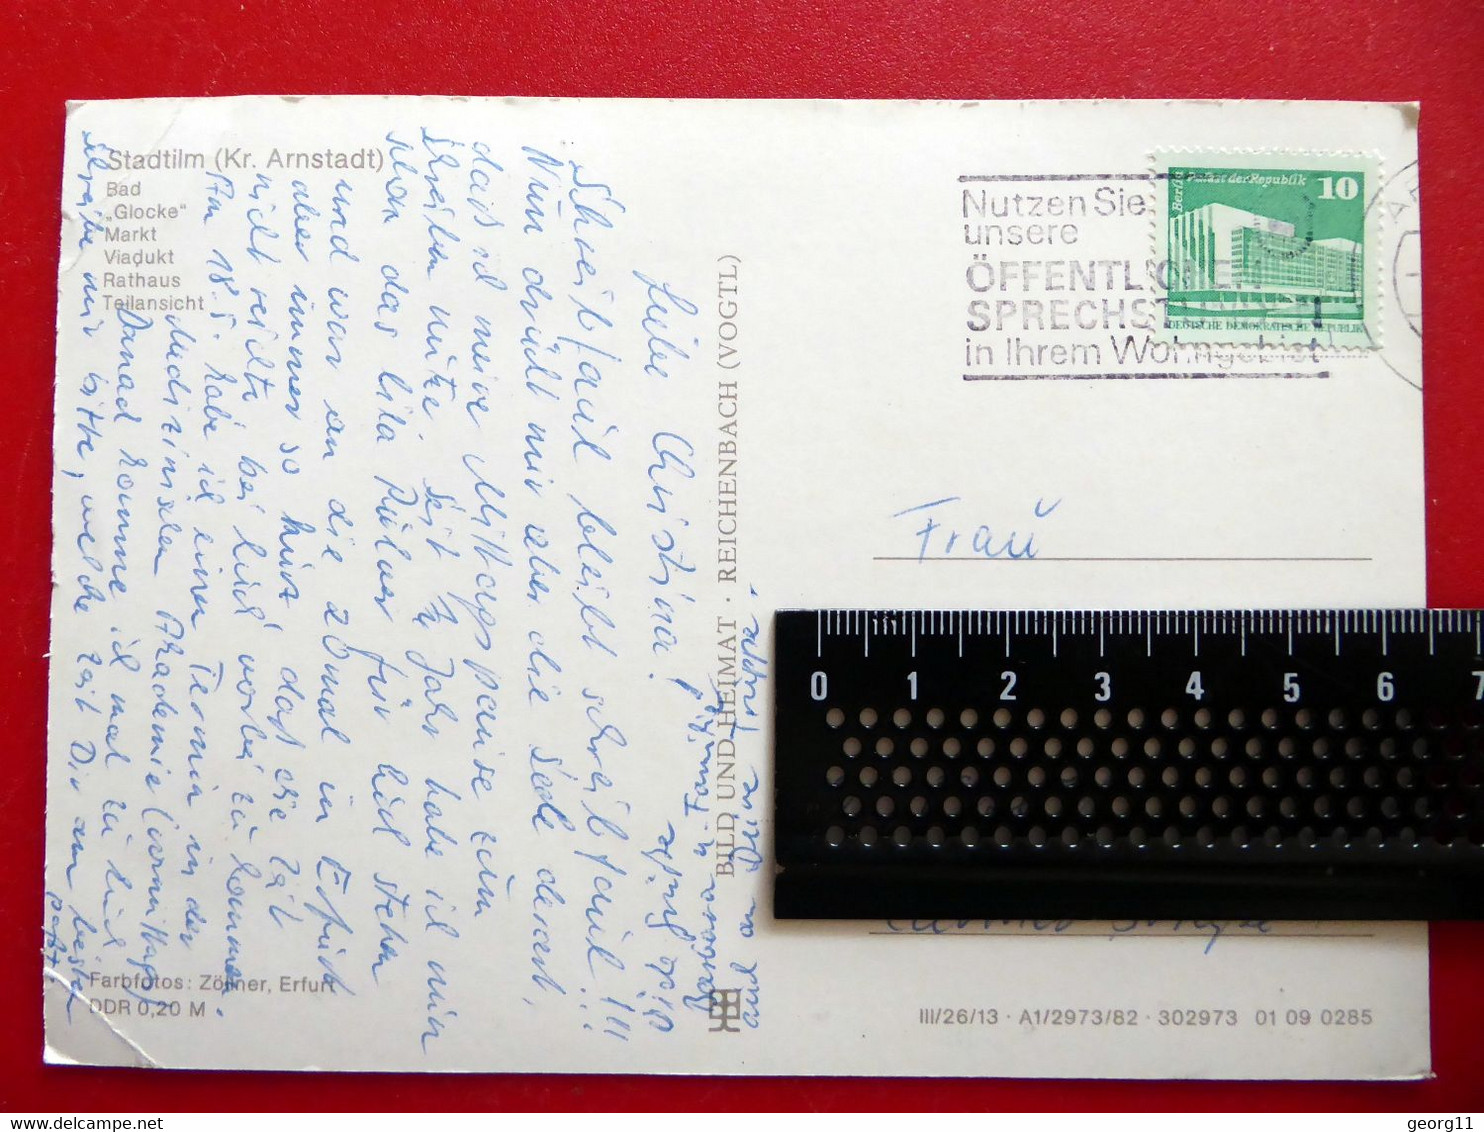 Stadtilm (Kr. Arnstadt)
Bad
„Glocke“
Markt
Viadukt
Rathaus
Teilansicht
Liebe Christina!
Schreibfaul bleibt schreibfaul!!!
Nun drückt mir aber die Seele derart,
daß ich meine Mittagspause zum
Schreiben nütze. Seit ½ Jahr habe ich nun
schon das lila Pulver für Dich stehen
und war an die 20mal in Erfurt
aber immer so kurz daß die Zeit
nicht reichte bei Dir vorbei zu kommen.
Am 18.5. habe ich einen Termin in der
Medizinischen Akademie (vormittags)
Danach komme ich mal zu Dir
schreibe mir bitte, welche Zeit Dir am besten
paßt.
Viele Grüße
u. Familie
auch an Deine Truppe.
BILD UND HEIMAT · REICHENBACH (VOGTL)
Nutzen Sie
unsere
ÖFFENTLICHEN
SPRECHST
in Ihrem Wohngebiet
Berlin Palast der Republik 10
DEUTSCHE DEMOKRATISCHE REPUBLIK
Frau
0 1 2 3 4 5 6 7
Farbfotos: Zöllner, Erfurt
DDR 0,20 M
III/26/13 · A1/2973/82 · 302973 01 09 0285
georg11